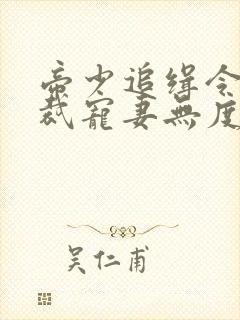 帝少追缉令
裁宠妻无度
吴仁甫